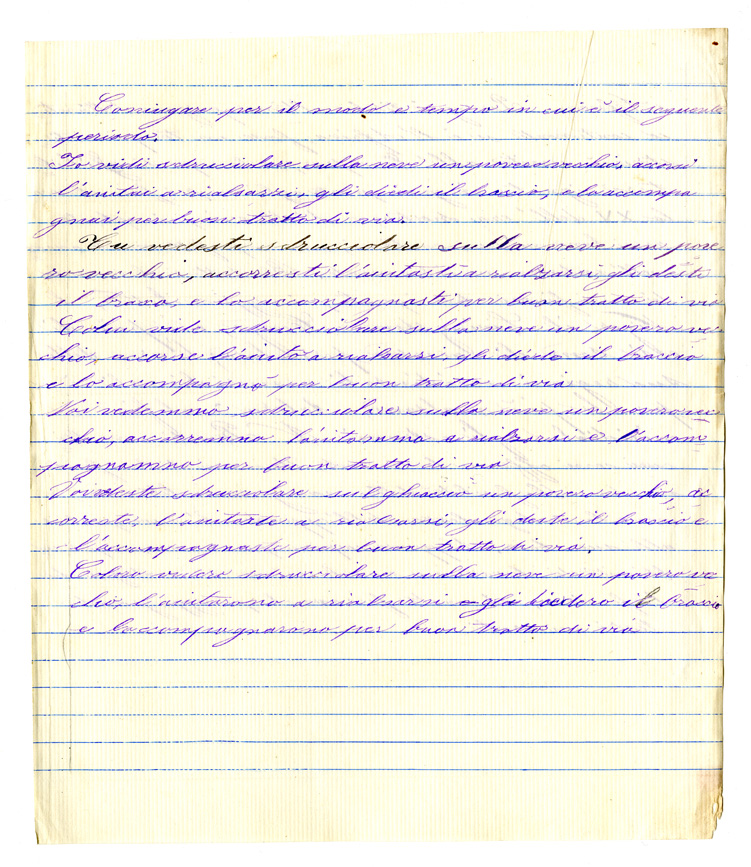 Coniugare per il modo e tempo in cui è il seguente
periodo.
Io vidi sdrucciolare sulla neve un povero vecchio, accorsi
l'aiutai a rialzarzi, gli diedi il bracio, e lo accompa
gnai per buon tratto di via.
Tu vedesti sdrucciolare sulla neve un pove
ro vecchio, accorresti l'aiutasti a rialzarsi, gli desti
il braxo, e lo accompagnasti per buon tratto di via
Colui vide sdrucciolare sulla neve un povero ve
chio, accorse l'aiutò a rialzarsi, gli diede il braccio
e lo accompagnò per buon tratto di via
Noi vedemmo sdrucciolare sulla neve un povero ve
chio, accorremno l'aiutammo a rialzarsi e l'accom
pagnamno per buon tratto di via
Voi vedeste sdrucciolare sul ghiaccio un povero vecchio, ac
correste l'aiutaste a rialzarsi, gli deste il bracio e
l'accompagnaste per buon tratto di via.
Coloro videro sdrucciolare sulla neve un povero ve
chio, l'aiutarono a rialzarsi e gli diedero il bracio
e l'accompagnarono per buon tratto di via